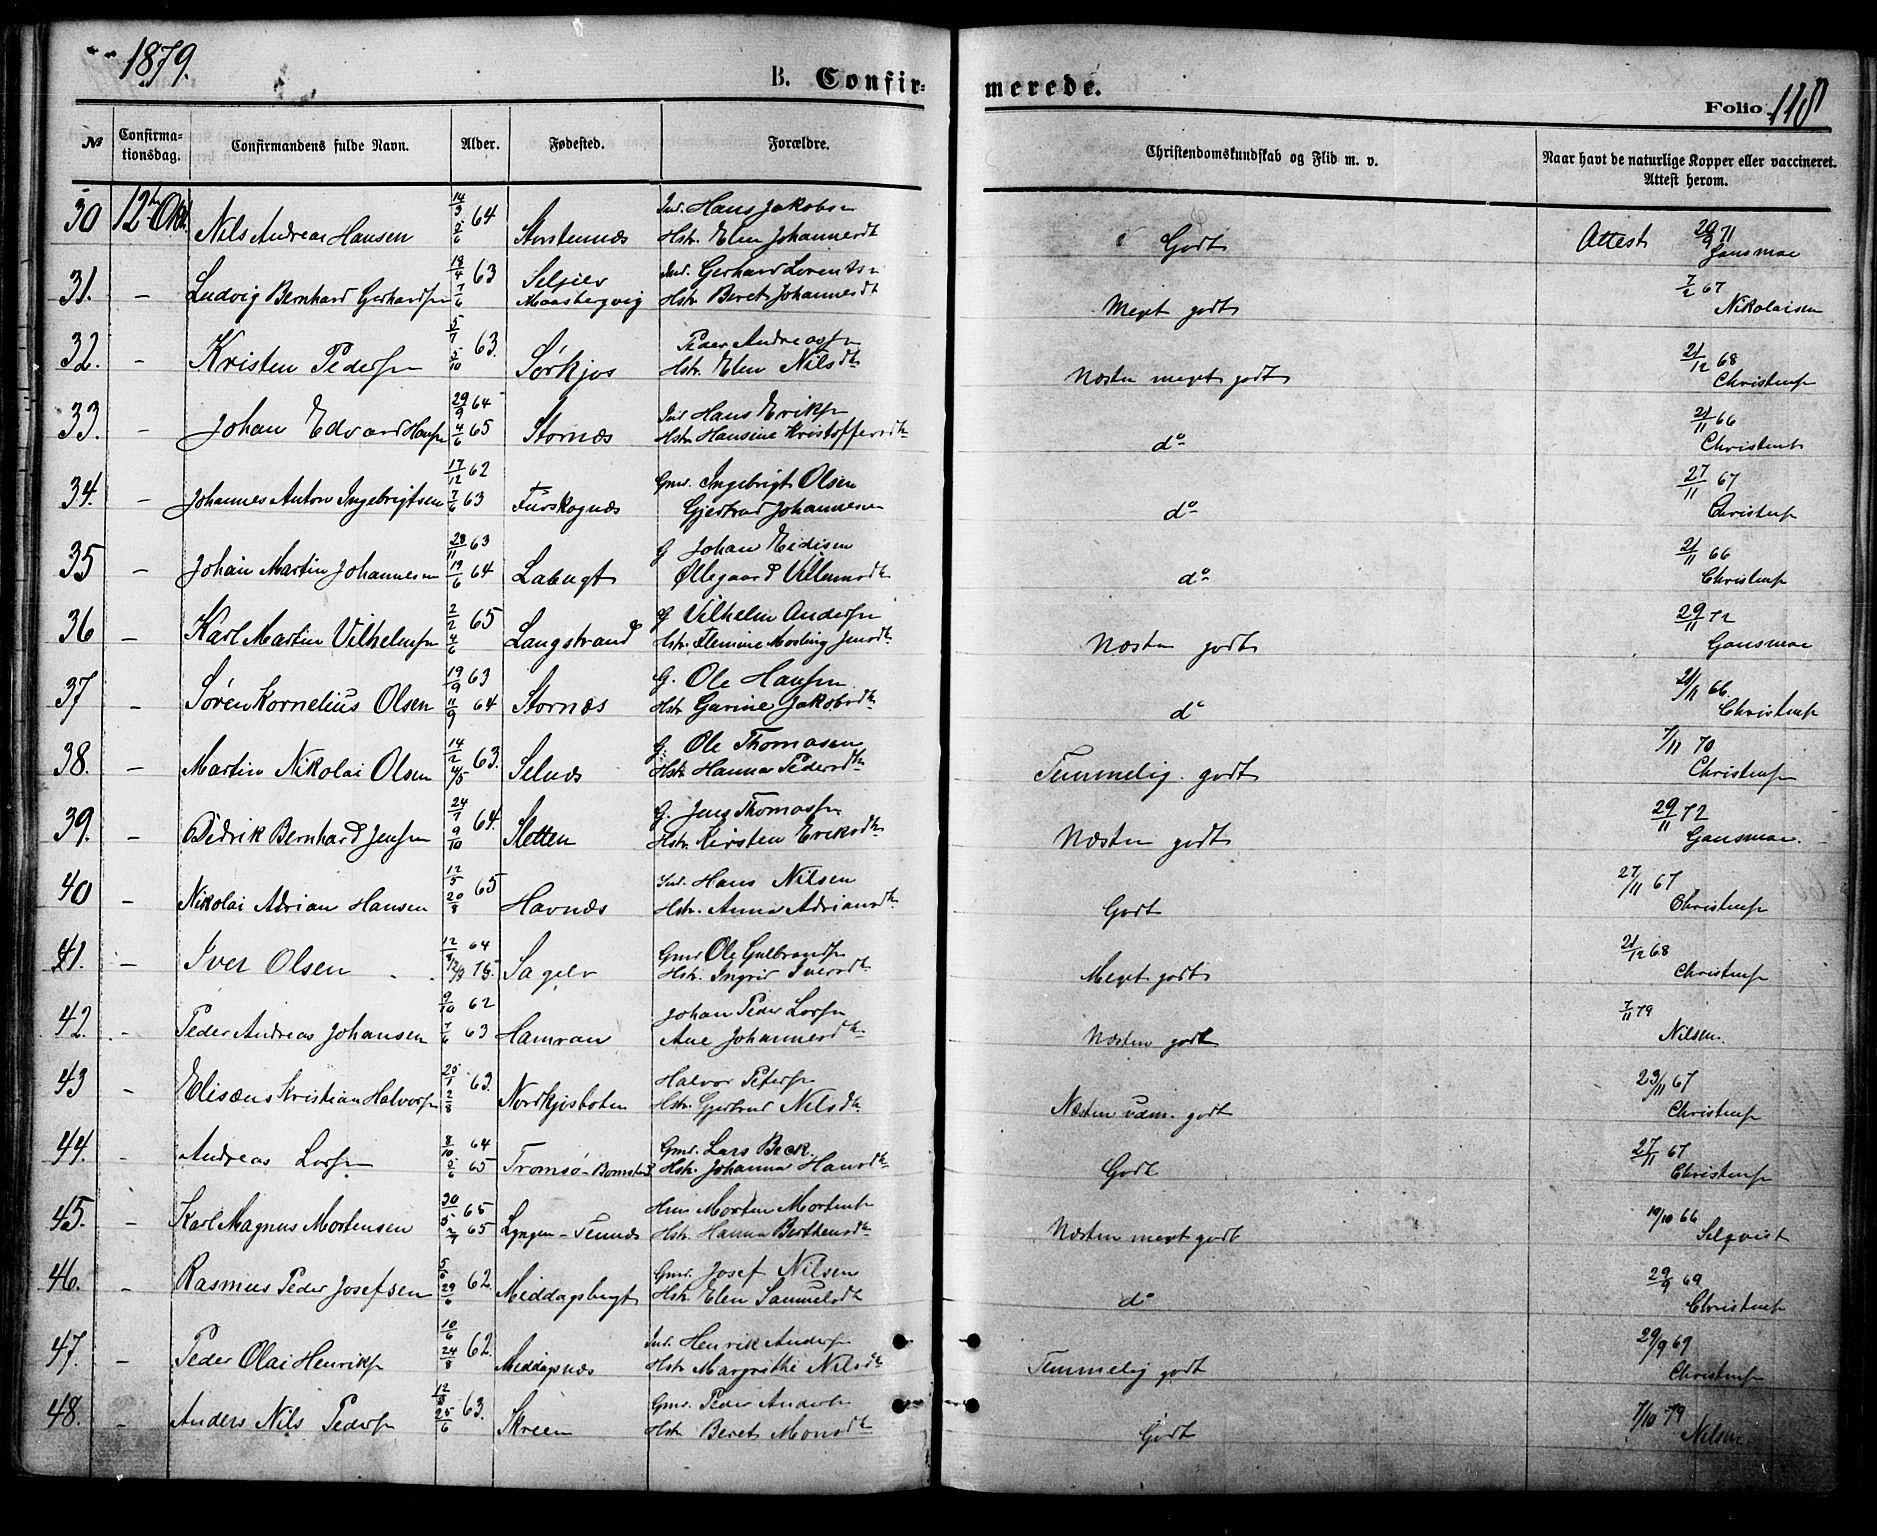 1879.
B. Confir-
merede.
Folio 110
No
Confirma-
tionsdag.
Confirmandens fulde Navn.
Alder.
Fødested.
Forældre.
Christendomskundskab og Flid m. v.
Naar havt de naturlige Kopper eller vaccineret.
Attest herom.
30 12te Okt. Nils Andreas Hansen 14/3 2/6 64 Storstennæs Ind. Hans Jakobsen Hstr. Elen Johannesdt Godt Attest 29/9 71 Gausmae
31. - Ludvig Bernhard Gerhardsen 18/4 7/6 63 Seljelv Maasbergvig Ind. Gerhard Lorentsen Hstr. Beret Johannesdt Meget godt 7/2 67 Nikolaisen
32. - Kristen Pedersen 5/7 5/10 63. Sørkjos Peder Andreassen Hstr. Elen Nilsdt Næsten meget godt 21/12 68 Christensen
33. - Johan Edvard Hansen 29/9 64 4/6 65 Stornæs Ind Hans Eriksen Hstr. Hansine Kristoffersdt do 21/11 66 Christensen
34. - Johannes Anton Ingebrigtsen 17/12 62 7/6 63 Furskognæs Gmd. Ingebrigt Olsen Gjertrud Johannesen do 27/11 67 Christensen
35 - Johan Martin Johannesen 23/11 63 19/6 64 Labugt G Johan Eidisen Øllegaard Villumsdt do 21/11 66 Christensen
36 - Karl Martin Vilhelmsen 2/2 4/6 65 Langstrand G Vilhelm Andersen Hstr. Flemine Mosling Jensdt. Næsten godt 29/11 72 Gausmae
37 - Søren Kornelius Olsen 19/9 63 11/9 64 Stornæs G. Ole Hansen Hstr Gurine Jakobsdt. do 21/11 66. Christensen
38. - Martin Nikolai Olsen 14/2 4/5 63. Selnæs G. Ole Thomasen Hstr Hanna Pedersdt. Temmelig godt 7/11 70 Christensen
39. - Didrik Bernhard Jensen 24/7 9/10 64. Sletten G. Jens Thomassen Hstr. Kirsten Eriksdt. Næsten godt 29/11 72 Gausmae.
40 - Nikolai Adrian Hansen 12/5 20/8 65 Havnæs Ind. Hans Nilsen Hstr. Anna Adriansdt. Godt 27/11 67 Christensen
41. - Iver Olsen 64 75. Sagelv Gmd Ole Gulbrandsen Hstr. Ingrid Iversdt. Meget godt 21/12 68 Christensen
42. - Peder Andreas Johansen 9/10 62 7/6 63 Hamran Johan Peder Larsen Ane Johannesdt. Næsten godt 7/11 79 Nilsen.
43 - Elisæus Kristian Halvorsen 25/1 2/8 63. Nordkjosboten Halvor Petersen Hstr. Gjertrud Nilsdt. Næsten udm. godt 23/11 67 Christensen
44. - Andreas Larsen 8/10 64 5/6 65 Tromsø-Bomstad Gmd. Lars Beck. Hstr. Johanna Hansdt. Godt 27/11 67 Christensen
45. - Karl Magnus Mortensen 30/5 65 2/7 65 Lyngen- Hum Morten Mortensen Hstr. Hanna Berthensdt. Næsten meget godt 19/10 66 Selqvist
46. - Rasmus Peder Josefsen 5/5 29/6 62. Middagsbugt Gmd. Josef Nilsen Hstr. Elen Samuelsdt. do 29/9 69 Christensen
47. - Peder Olai Henriksen 10/6 24/8 62. Middagsnæs Ind. Henrik Andersen Hstr. Margrethe Nilsdt. Temmelig godt 29/9 69 Christensen
48. - Anders Nils Pedersen 12/3 25/6 63. Skreen Gmd. Peder Andersen Hstr Beret Monsdt. Godt 7/10 79 Nilsen